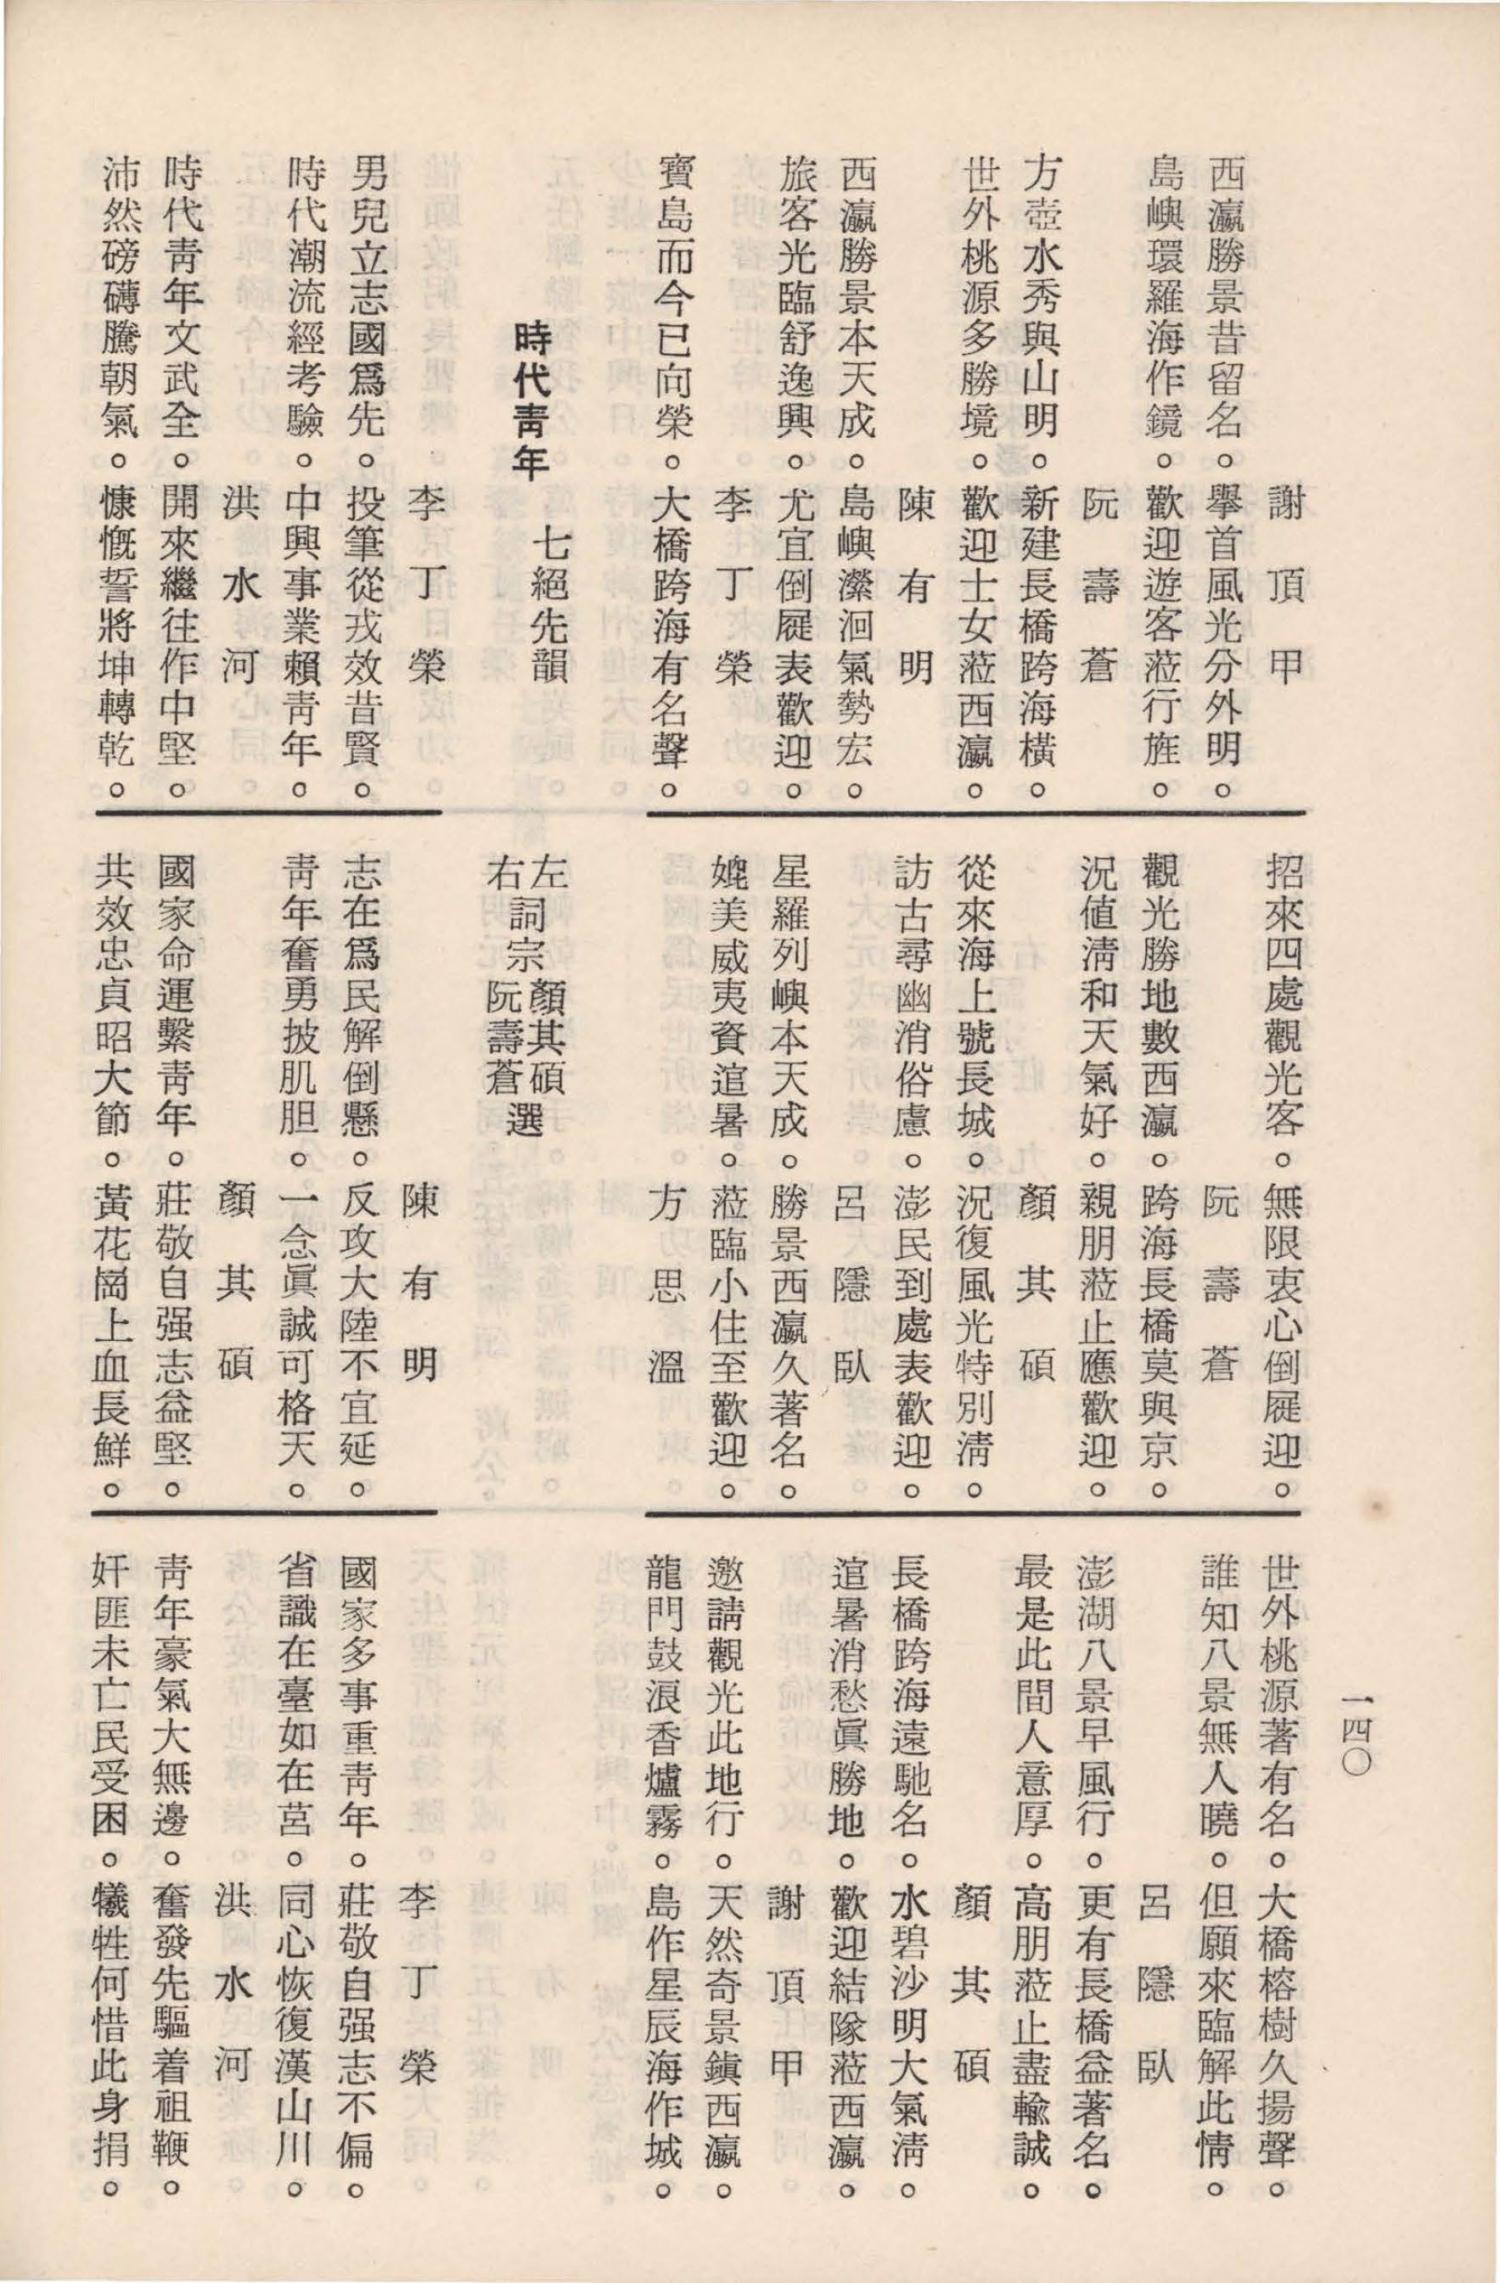 謝頂甲
西瀛勝景昔留名。舉首風光分外明。
島嶼環羅海作鏡。歡迎遊客蒞行旌。
阮壽蒼
方壺水秀與山明。新建長橋跨海橫。
世外桃源多勝境。歡迎士女蒞西瀛。
陳有明
西瀛勝景本天成。島嶼瀠洄氣勢宏。
旅客光臨舒逸興。尤宜倒屣表歡迎。
李丁榮
寶島而今已向榮。大橋跨海有名聲。
招來四處觀光客。無限衷心倒屣迎。
阮壽蒼
觀光勝地數西瀛。跨海長橋莫與京。
況值淸和天氣好。親朋蒞止應歡迎。
顏其碩
從來海上號長城。況復風光特別淸。
訪古尋幽消俗慮。澎民到處表歡迎。
呂隱臥
星羅列嶼本天成。勝景西瀛久著名。
媲美威夷資逭暑。蒞臨小住至歡迎。
方思溫
世外桃源著有名。大橋榕樹久揚聲。
誰知八景無人曉。但願來臨解此情。
呂隱臥
澎湖八景早風行。更有長橋益著名。
最是此間人意厚。高朋蒞止盡輸誠。
顏其碩
長橋跨海遠馳名。水碧沙明大氣淸。
逭暑消愁眞勝地。歡迎結隊蒞西瀛。
謝頂甲
邀請觀光此地行。天然奇景鎭西瀛。
龍門鼓浪香爐霧。島作星辰海作城。
時代靑年 七絕先韻
左右詞宗 顏其碩 阮壽蒼 選
李丁榮
男兒立志國爲先。投筆從戎效昔賢。
時代潮流經考驗。中興事業賴靑年。
洪水河
時代靑年文武全。開來繼往作中堅。
沛然磅礴騰朝氣。慷慨誓將坤轉乾。
陳有明
志在爲民解倒懸。反攻大陸不宜延。
靑年奮勇披肌胆。一念眞誠可格天。
顏其碩
國家命運繫靑年。莊敬自强志益堅。
共效忠貞昭大節。黃花崗上血長鮮。
李丁榮
國家多事重靑年。莊敬自强志不偏。
省識在臺如在莒。同心恢復漢山川。
洪水河
靑年豪氣大無邊。奮發先驅着祖鞭。
奸匪未亡民受困。犧牲何惜此身捐。
一四〇